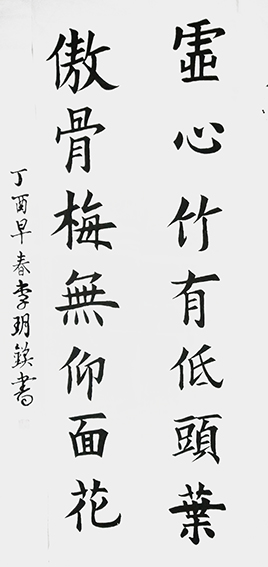 虛心竹有低頭葉
傲骨梅無仰面花
丁酉早春李玥鎂書